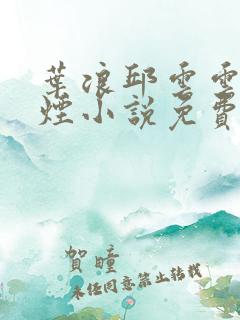 葉浪邱雲雲
煙小說免費
賀瞳
未经同意禁止转载